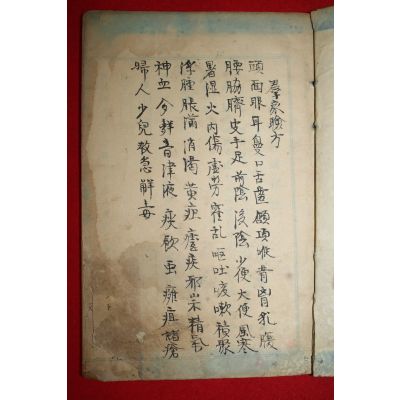 羣衆驗方
頭面眼耳鼻口舌齒頸項喉背胷乳腹
腰脇臍皮手足前陰後陰少便大便風寒
暑湿火內傷虛勞霍乱嘔吐咳嗽積聚
浮腫脹滿消渴黃疸痎疾邪祟精氣
神血夢聲音津液痰飮蟲癰疽諸瘡
婦人少兒救急解毒